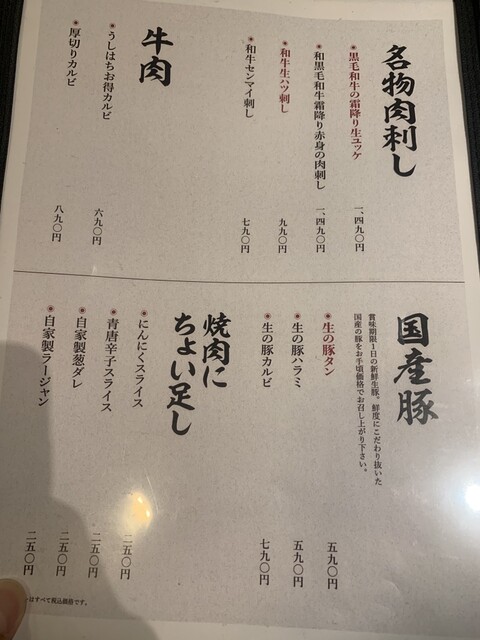 名物肉刺し
黒毛和牛の霜降り生ユッケ 一、四九〇円
和黒毛和牛霜降り赤身の肉刺し 一、四九〇円
和牛生ハツ刺し 九九〇円
和牛センマイ刺し 七九〇円
牛肉
うしはちお得カルビ 六九〇円
厚切りカルビ 八九〇円
国産豚
賞味期限1日の新鮮生豚。鮮度にこだわり抜いた
国産の豚をお手頃価格でお召し上がり下さい。
生の豚タン 五九〇円
生の豚ハラミ 五九〇円
生の豚カルビ 七九〇円
焼肉に
ちょい足し
にんにくスライス 二五〇円
青唐辛子スライス 二五〇円
自家製葱ダレ 二五〇円
自家製ラージャン 二五〇円
はすべて税込価格です。